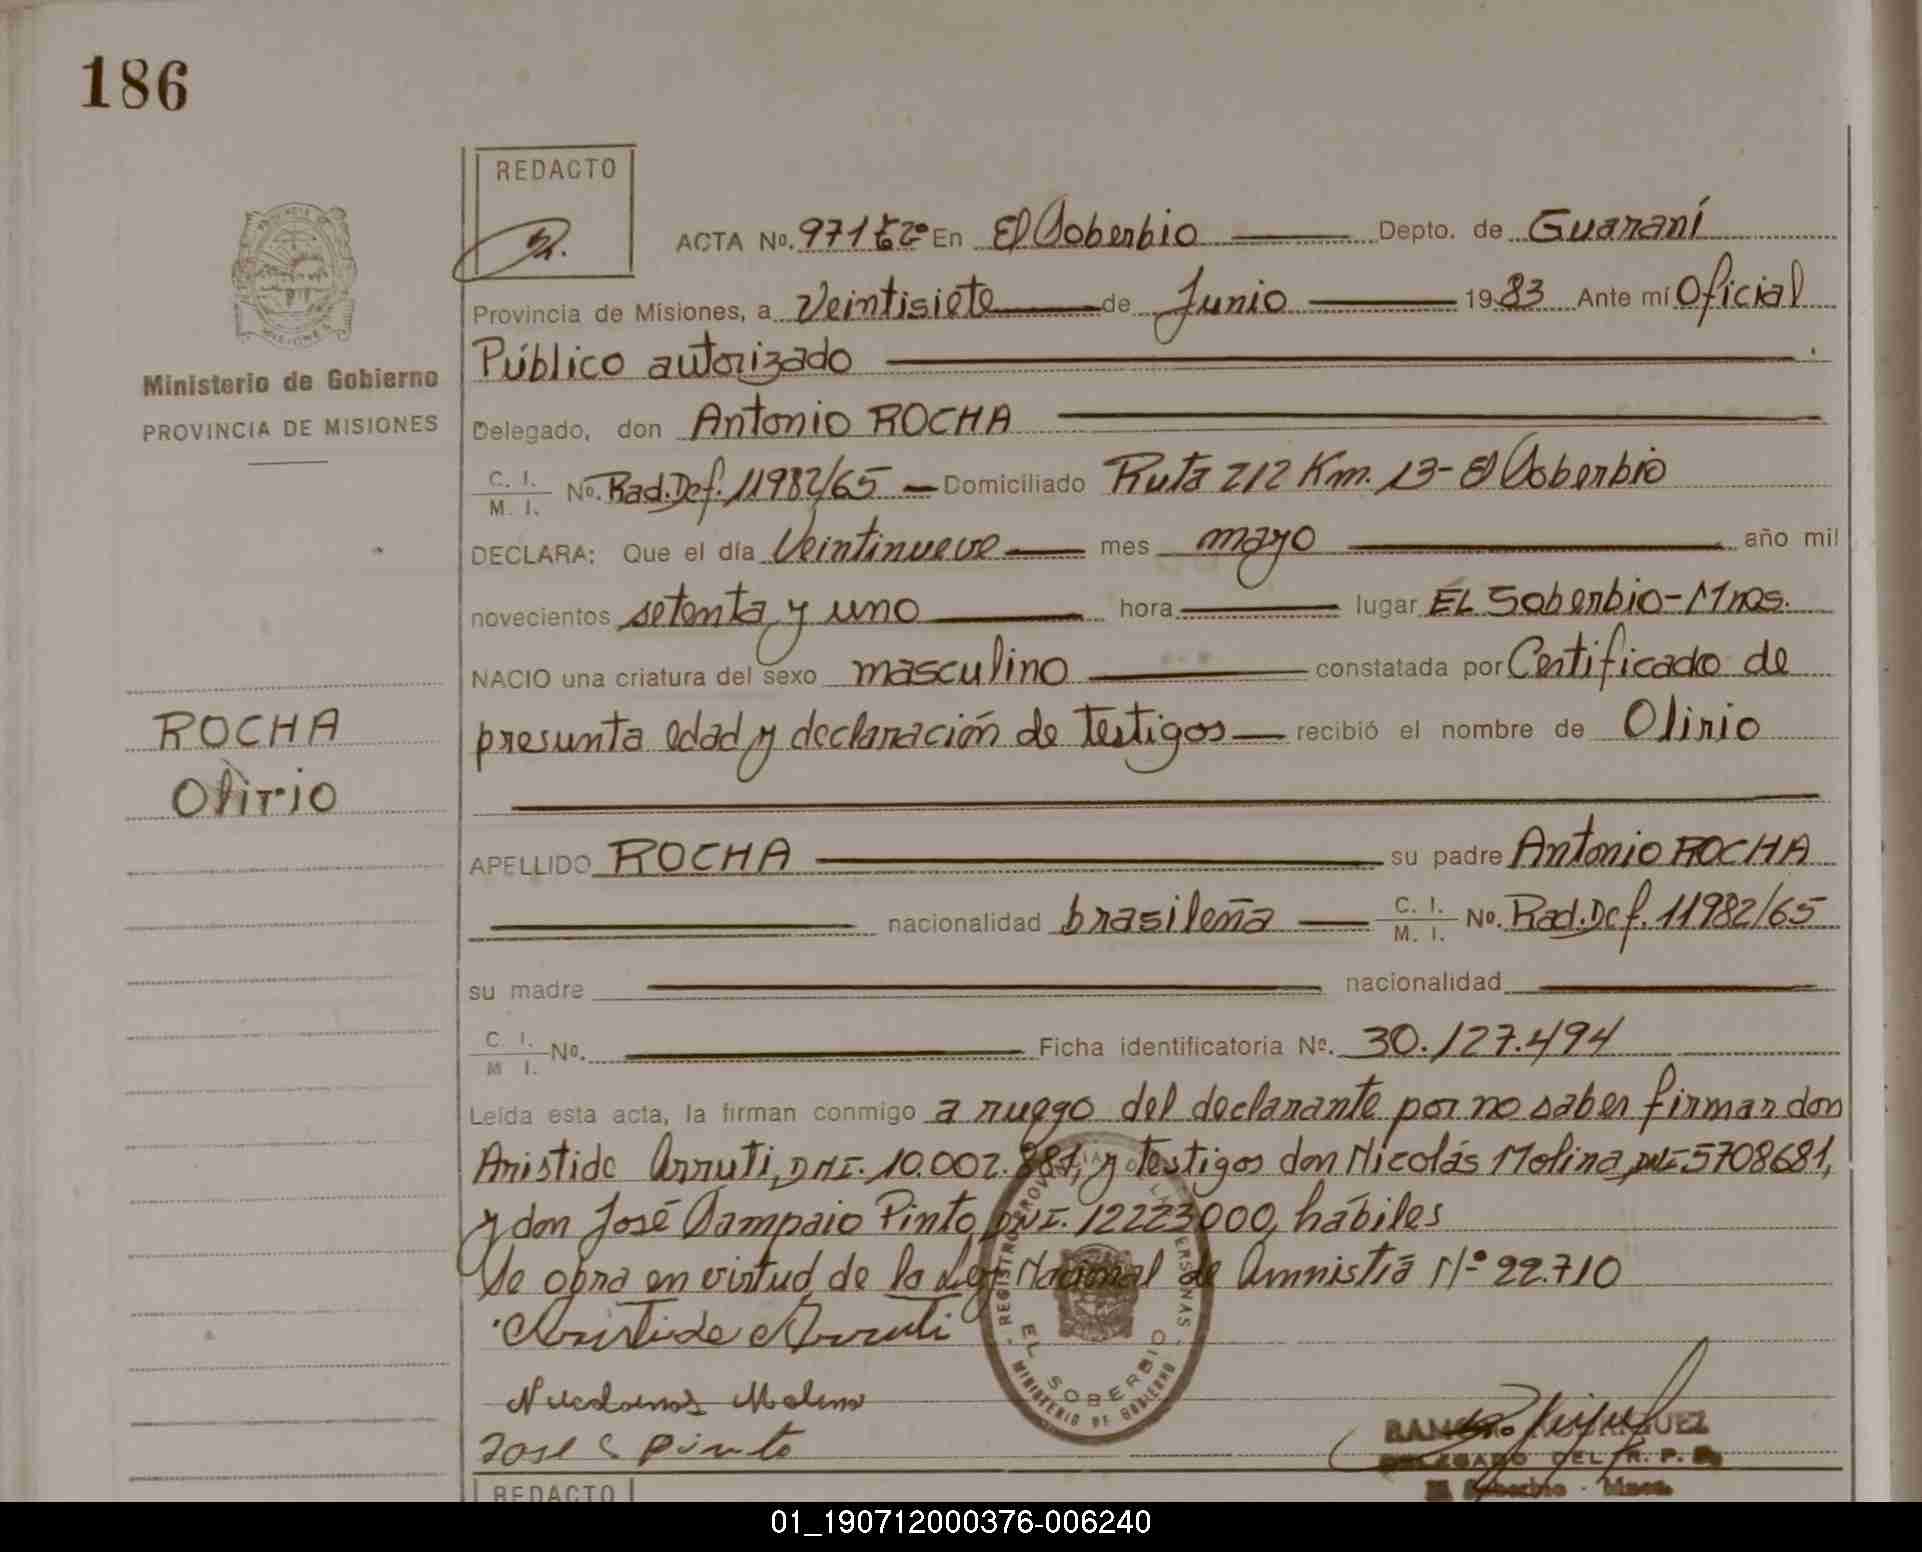 186
REDACTO
ACTA No. 971 tº 2º En El Soberbio Depto. de Guaraní
Provincia de Misiones, a Veintisiete de Junio 1983 Ante mí Oficial
Público autorizado
Ministerio de Gobierno
PROVINCIA DE MISIONES
Delegado, don Antonio ROCHA
C. I. M. I. No. Rad.Def. 11982/65 Domiciliado Ruta 212 Km. 13- El Soberbio
DECLARA: Que el día Veintinueve mes mayo año mil
novecientos setenta y uno hora lugar EL Soberbio-Mnes.
NACIO una criatura del sexo masculino constatada por Certificado de
presunta edad y declaración de testigos recibió el nombre de Olirio
ROCHA
Olirio
APELLIDO ROCHA su padre Antonio ROCHA
nacionalidad brasileña C. I. M. I. No. Rad.Def. 11982/65
su madre nacionalidad
C. I. M I. No. Ficha identificatoria No. 30.127.494
Leída esta acta, la firman conmigo a ruego del declarante por no saber firmar don
Aristide Arruti, DNI. 10.002.881, y testigos don Nicolás Molina, DNI-5708681,
y don José Sampaio Pinto, DNI. 12223000, hábiles
Se obra en virtud de la Ley Nacional de Amnistía Nº 22.710
Aristide Arruti
Molina
Jose S Pinto
REGISTRO PROVINCIAL DE LAS PERSONAS
EL SOBERBIO
MINISTERIO DE GOBIERNO
DELEGADO DEL R. P. P.
El Soberbio - Mnes.
REDACTO
01_190712000376-006240